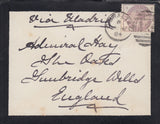 via Madrid
Admiral Hay
The Oates
Tunbridge Wells
England